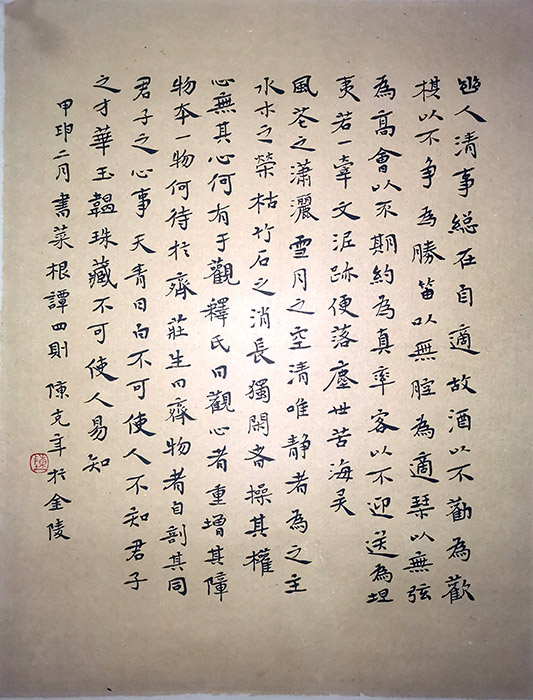 幽人清事総在自適故酒以不勸為歡
棋以不争為勝笛以無腔為適琴以無弦
為高會以不期約為真率客以不迎送為坦
夷若一牽文泥跡便落塵世苦海矣
風花之瀟灑雪月之空清唯静者為之主
水木之榮枯竹石之消長獨閑者操其權
心無其心何有于觀釋氏曰觀心者重增其障
物本一物何待於齊莊生曰齊物者自剖其同
君子之心事天青日白不可使人不知君子
之才華玉韞珠藏不可使人易知
甲二月書菜根譚四則陳克年於金陵